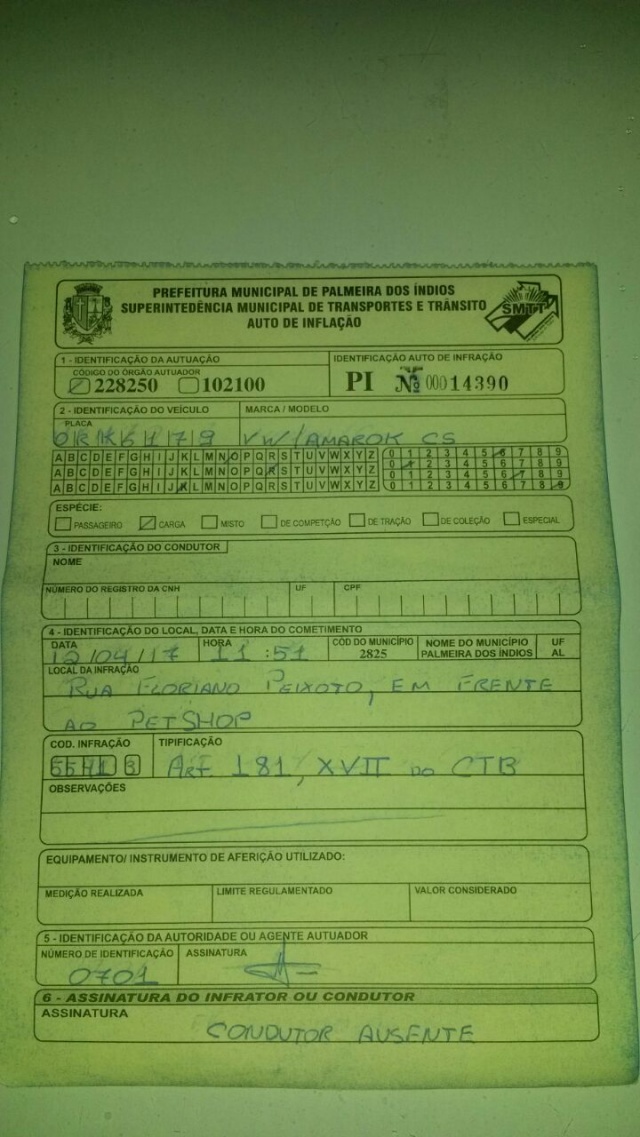 PREFEITURA MUNICIPAL DE PALMEIRA DOS ÍNDIOS
SUPERINTEDÊNCIA MUNICIPAL DE TRANSPORTES E TRÂNSITO
AUTO DE INFLAÇÃO
SMTT
1 - IDENTIFICAÇÃO DA AUTUAÇÃO
CÓDIGO DO ÓRGÃO AUTUADOR
228250 102100
IDENTIFICAÇÃO AUTO DE INFRAÇÃO
PI Nº 00014390
2 - IDENTIFICAÇÃO DO VEÍCULO
MARCA / MODELO
PLACA
ORK6179 VW/AMAROK CS
A B C D E F G H I J K L M N O P Q R S T U V W X Y Z 0 1 2 3 4 5 6 7 8 9
A B C D E F G H I J K L M N O P Q R S T U V W X Y Z 0 1 2 3 4 5 6 7 8 9
A B C D E F G H I J K L M N O P Q R S T U V W X Y Z 0 1 2 3 4 5 6 7 8 9
0 1 2 3 4 5 6 7 8 9
ESPÉCIE:
PASSAGEIRO CARGA MISTO DE COMPETÇÃO DE TRAÇÃO DE COLEÇÃO ESPECIAL
3 - IDENTIFICAÇÃO DO CONDUTOR
NOME
NÚMERO DO REGISTRO DA CNH UF CPF
4 - IDENTIFICAÇÃO DO LOCAL, DATA E HORA DO COMETIMENTO
DATA HORA CÓD DO MUNICÍPIO NOME DO MUNICÍPIO UF
12/04/17 11:51 2825 PALMEIRA DOS ÍNDIOS AL
LOCAL DA INFRAÇÃO
RUA FLORIANO PEIXOTO, EM FRENTE
AO PETSHOP
COD. INFRAÇÃO TIPIFICAÇÃO
5541 3 ART 181, XVII DO CTB
OBSERVAÇÕES
EQUIPAMENTO/ INSTRUMENTO DE AFERIÇÃO UTILIZADO:
MEDIÇÃO REALIZADA LIMITE REGULAMENTADO VALOR CONSIDERADO
5 - IDENTIFICAÇÃO DA AUTORIDADE OU AGENTE AUTUADOR
NÚMERO DE IDENTIFICAÇÃO ASSINATURA
0701
6 - ASSINATURA DO INFRATOR OU CONDUTOR
ASSINATURA
CONDUTOR AUSENTE